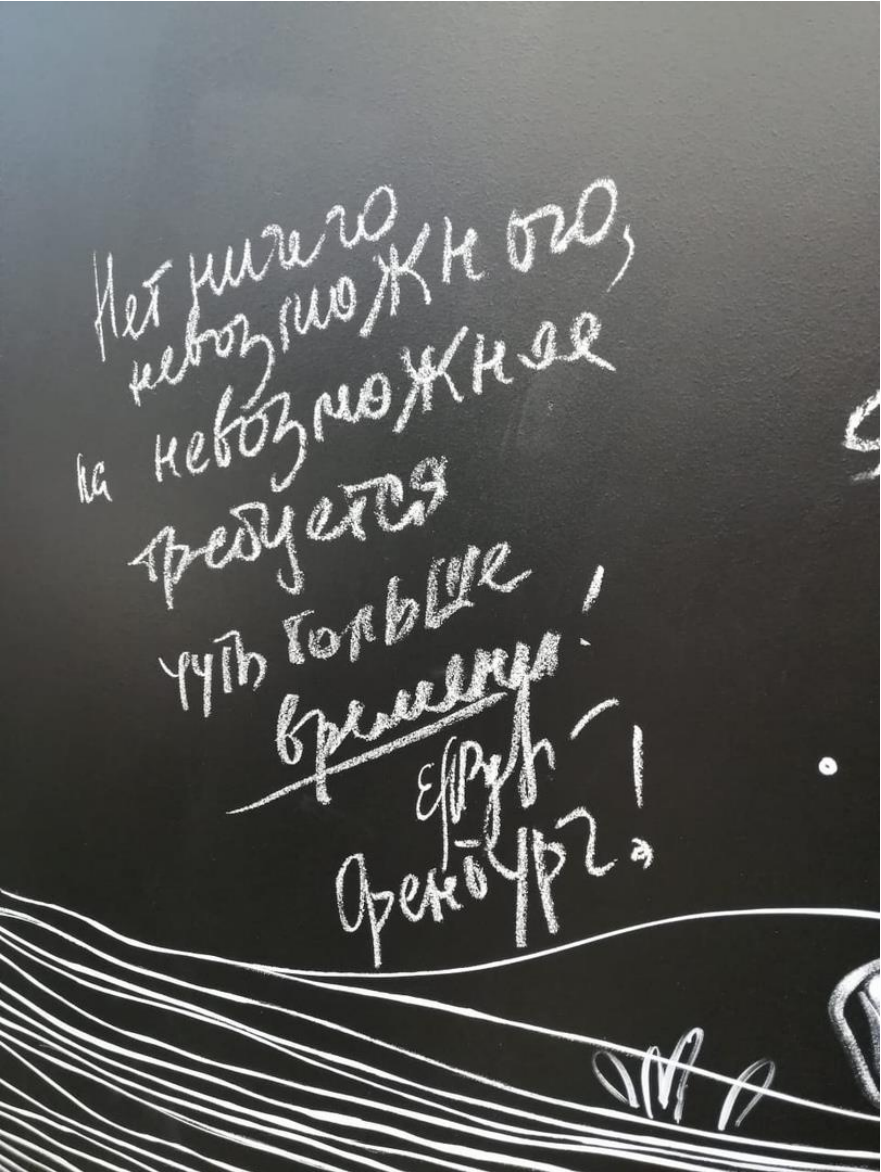 Нет ничего
невозможного,
на невозможное
требуется
чуть больше
времени!
Оренбург!